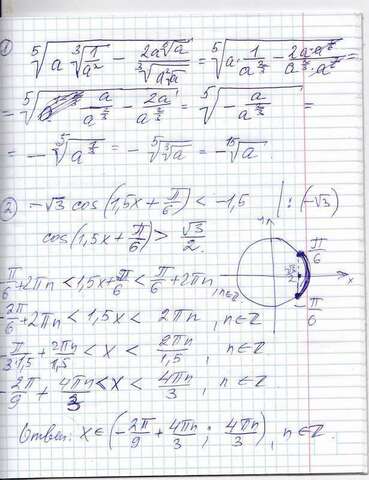 ① ⁵√(a ³√(1/a²) - 2a√a / ³√(√a²a)) = ⁵√(a · 1/a^(2/3) - 2a · a^(1/2) / (a^(2/3) · a^(1/2))) =
= ⁵√(a/a^(2/3) - 2a/a^(2/3)) = ⁵√(- a/a^(2/3)) =
= - ⁵√(a^(1/3)) = - ⁵√(³√a) = - ¹⁵√a.
② -√3 cos(1,5x + π/6) < -1,5 | : (-√3)
cos(1,5x + π/6) > √3/2.
π/6 + 2πn < 1,5x + π/6 < π/6 + 2πn, n∈Z
-2π/6 + 2πn < 1,5x < 2πn, n∈Z
-π/3·1,5 + 2πn/1,5 < x < 2πn/1,5, n∈Z
-2π/9 + 4πn/3 < x < 4πn/3, n∈Z
Ответ: x∈(-2π/9 + 4πn/3; 4πn/3), n∈Z.
π/6
√3/2
x
-π/6